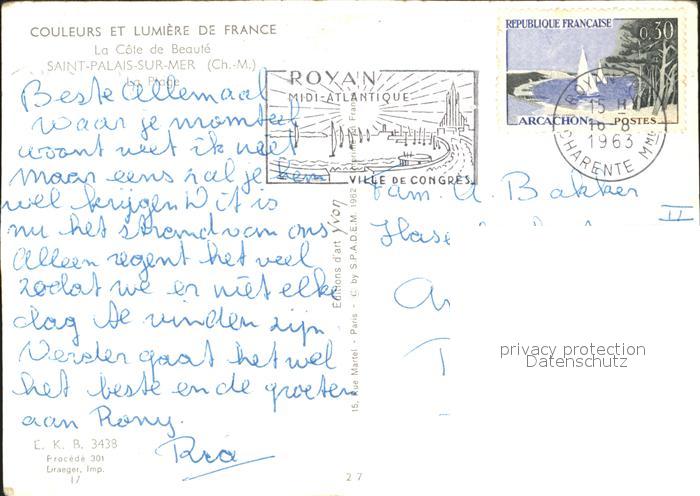 COULEURS ET LUMIÈRE DE FRANCE
La Côte de Beauté
SAINT-PALAIS-SUR-MER (Ch.-M.)
La Plage
Beste Allemaal
waar je momteel
woont weet ik niet
maar eens zal je hem
wel krijgen Dit is
nu het strand van ons
Alleen regent het veel
zodat we er niet elke
dag te vinden zijn.
Verder gaat het wel
het beste en de groeten
aan Rony.
Ria
E. K. B. 3438
Procédé 301
Draeger, Imp.
17
27
ROYAN
MIDI-ATLANTIQUE
VILLE DE CONGRÈS
Editions d'art yvon
15, Rue Martel - Paris - C. by S.P.A.D.E.M. 1962
REPUBLIQUE FRANÇAISE
0,30
ARCACHON
POSTES
ROYAN
15 H
16-8
1963
CHARENTE Mme
Fam. A. Bakker
II
privacy protection
Datenschutz